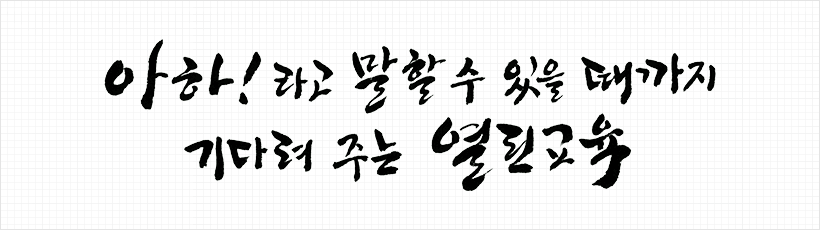 아하! 라고 말할 수 있을 때까지
기다려 주는 열린교육